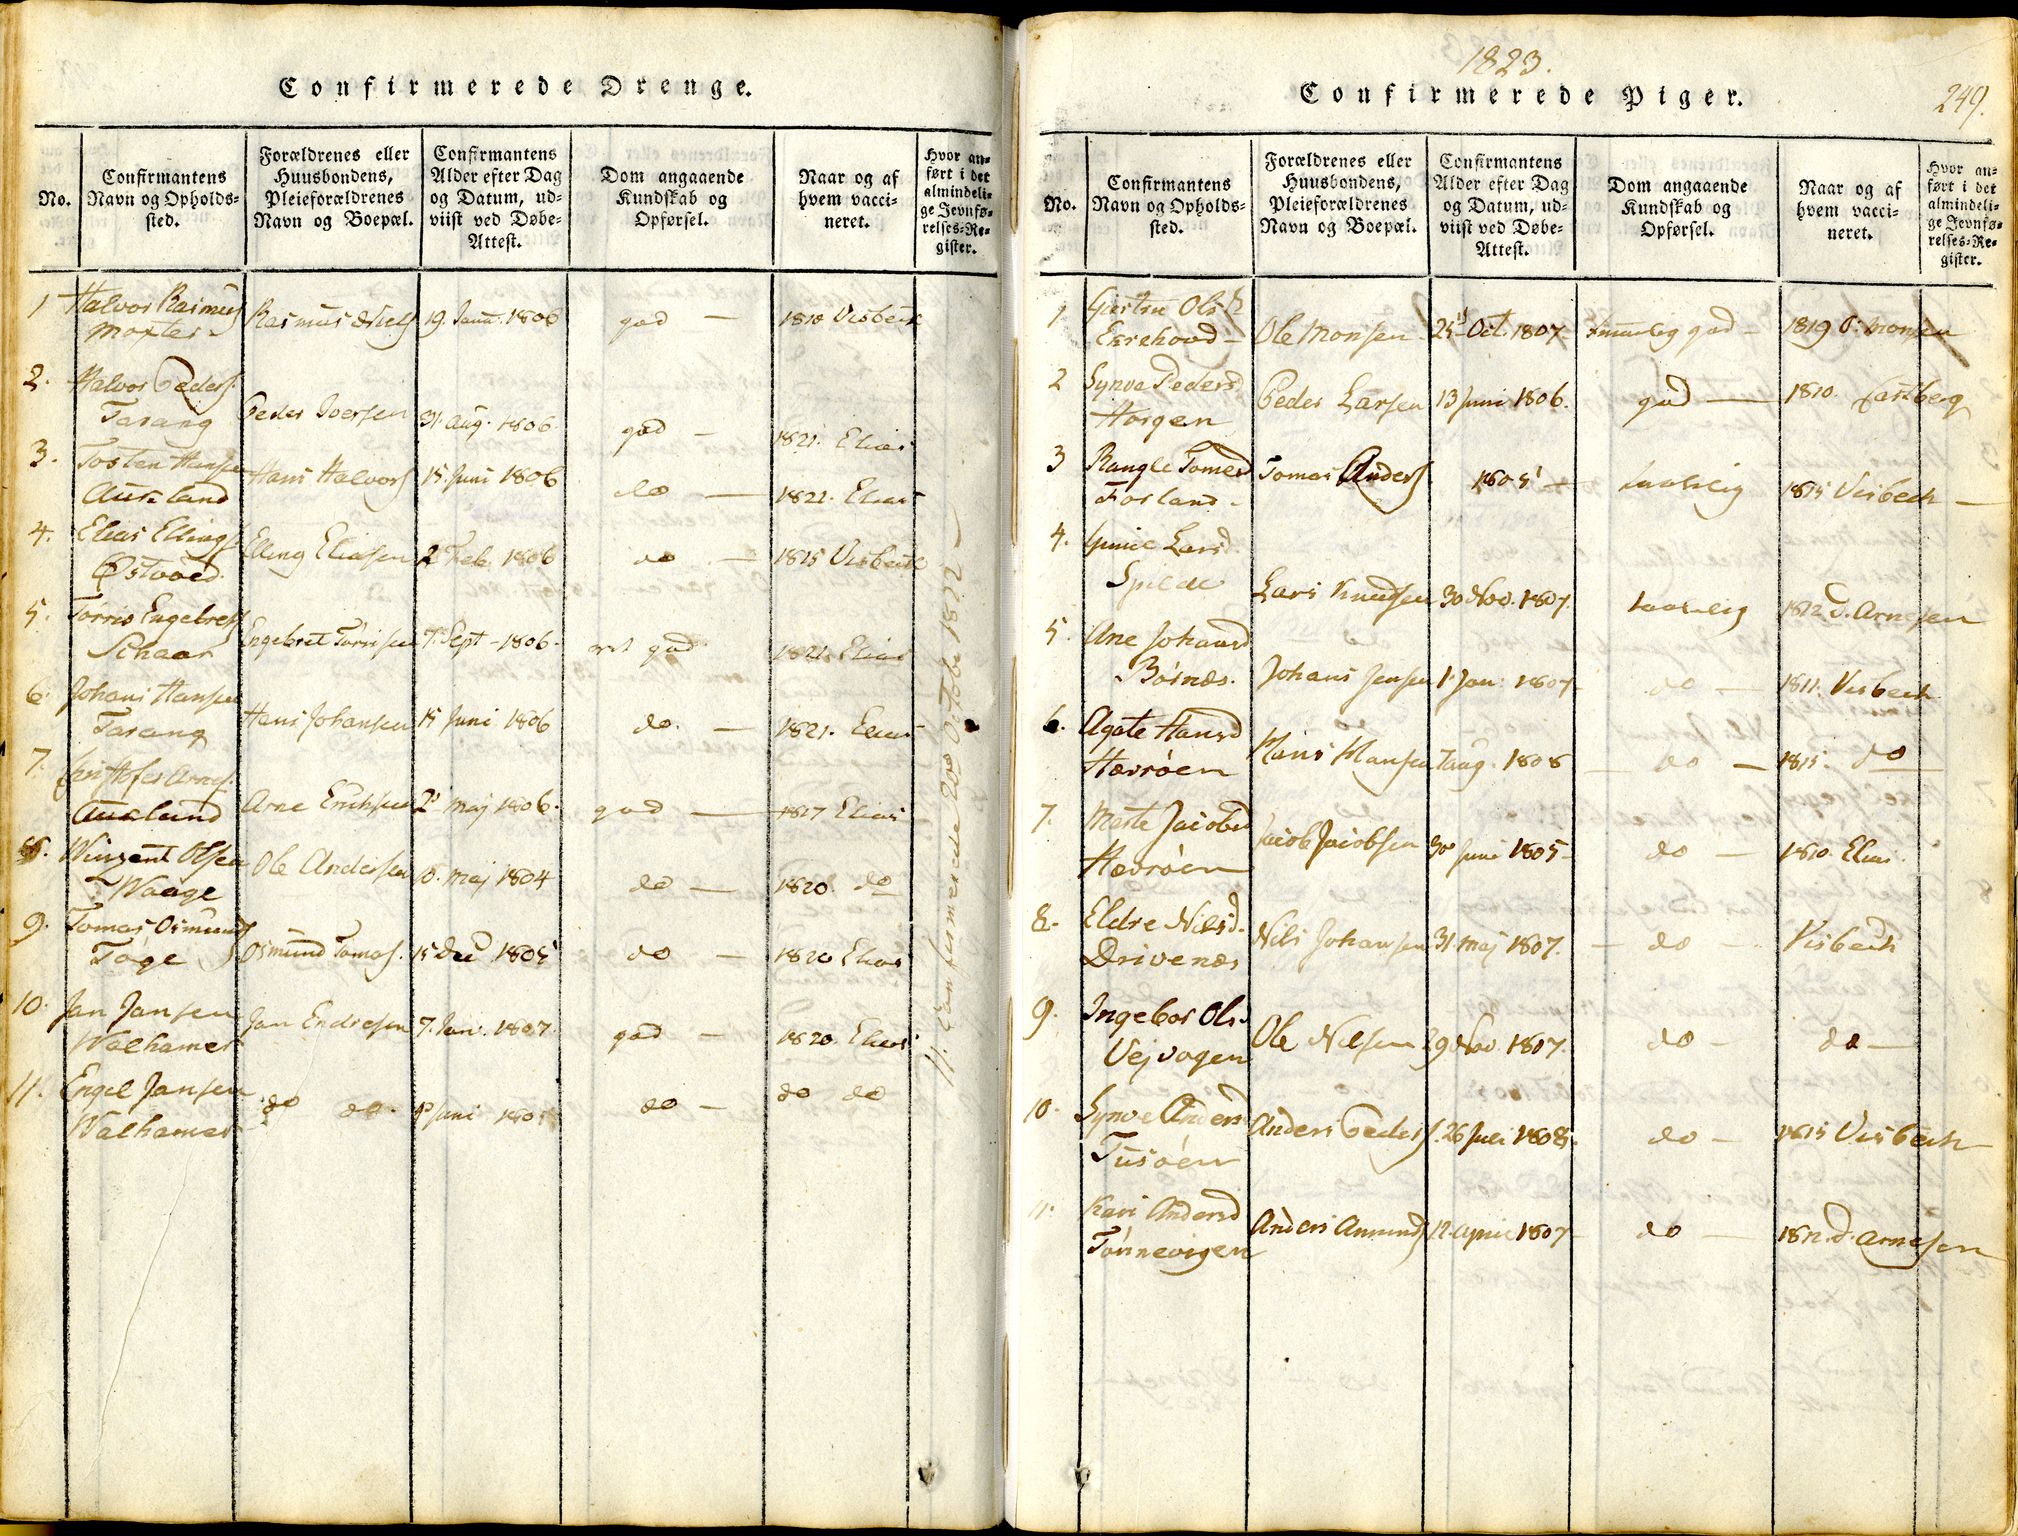 Confirmerede Drenge.
No.
Confirmantens
Navn og Opholds-
sted.
Forældrenes eller
Huusbondens,
Pleieforældrenes
Navn og Boepæl.
Confirmantens
Alder efter Dag
og Datum, ud-
viist ved Døbe-
Attest.
Dom angaaende
Kundskab og
Opførsel.
Naar og af
hvem vacci-
neret.
Hvor an-
ført i det
almindeli-
ge Jevnfø-
relses-Re-
gister.
1 Halvor Rasmus
Rasmus 19. Janu. 1806 god — 1810 Visbech
2. Halvor Peders.
Tarang Peder Iversen 31. Aug. 1806. god — 1821. Elias
3. Tosten Hansen
Aukland Hans Halvors 15. Juni 1806 do — 1821. Elias
4. Elias Ellings
Østvoed. Elling Eliasen 2 Feb. 1806 do — 1815 Visbech
5. Torris Engebrets
Schaar Engebret Torrisen 7. Sept - 1806. god 1821. Elias
6. Johans Hansen
Tarang Hans Johansen 15 Juni 1806 do. — 1821. Elias
7. Christofer Arnes.
Aukland Arne Erichsen 2 Maj 1806. god — 1817 Elias
8. Winzent Olsen
Waage Ole Andersen 10. Maj 1804 do — 1820. do
9. Tomas Osmunds
Toge Osmund Tomas. 15 Dec 1805 do — 1820 Elias
10. Jan Jansen
Walhamer Jan Endresen 7. Jan. 1807. god — 1820. Elias
11. Engel Jansen
Walhamer do do. Juni 180 do — do do
11. Confirmerede 20de Octobr 1822 —
1823.
Confirmerede Piger.
249.
No.
Confirmantens
Navn og Opholds-
sted.
Forældrenes eller
Huusbondens,
Pleieforældrenes
Navn og Boepæl.
Confirmantens
Alder efter Dag
og Datum, ud-
viist ved Døbe-
Attest.
Dom angaaende
Kundskab og
Opførsel.
Naar og af
hvem vacci-
neret.
Hvor an-
ført i det
almindeli-
ge Jevnfø-
relses-Re-
gister.
1 Giertru Olsd
Eksehovd — Ole Monsen 25 Oct. 1807 god — 1819 O: Monsen
2 Synve Pedersd
Horgen Peder Larsen 13 Juni 1806. god — 1810. Castberg
3 Rangle Tomesd
Fosland. Tomas Anders 1805 — taalelig 1815 Visbech —
4. Gunil Larsd.
Spilde Lars Knudsen 30 Nov. 1807. taalelig 1812 D. Arnesen
5. Ane Johansd
Børnæs. Johans Jensen 1. Jan: 1807 do — 1811. Visbech
6. Agate Hansd
Hævrøen Hans Hansen 7 Aug. 1808 — do — 1815. do
7. Marte Jacobsd
Hævrøen Jacob Jacobsen 30 Juni 1805 — do — 1810. Elias.
8. Eldre Nilsd.
Drivenæs Nils Johansen 31. Maj 1807. — do — Visbech
9. Ingebor Ols.
Vejvogen Ole Nilsen 29 Nov. 1807. do — do —
10. Synve Andersd
Tusøen Anders Peders. 26 Juli 1808. do — 1815 Visbech
11. Kari Andersd
Tønnevigen Anders Amunds 12. April 1807 — do — 1812. D. Arnesen